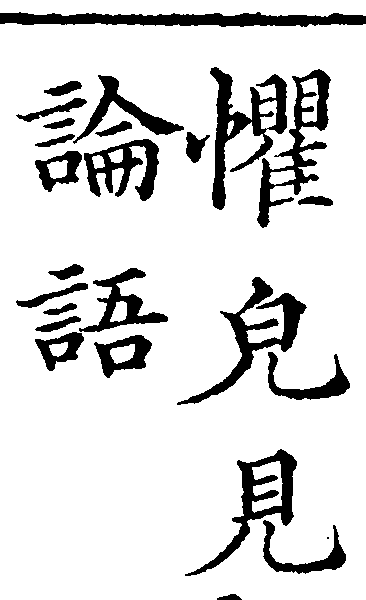 懼皃見
論語